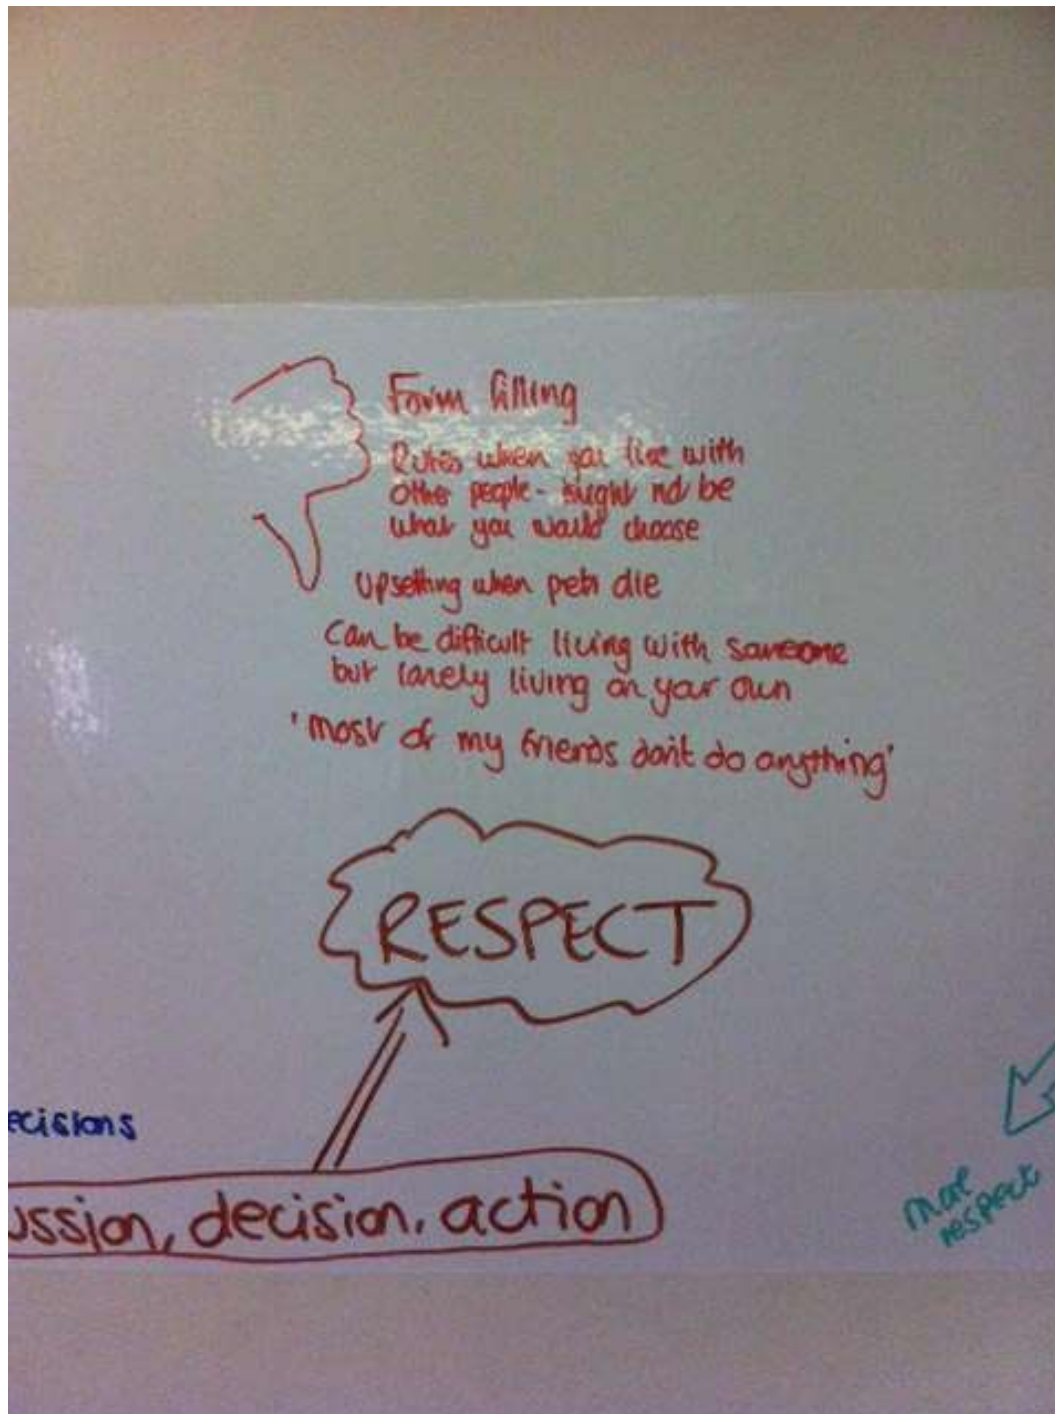 Form filling
Rules when you live with
other people - might not be
what you would choose
Upsetting when pets die
Can be difficult living with someone
but lonely living on your own
'most of my friends don't do anything'
RESPECT
ecisions
ussion, decision, action
more
respect